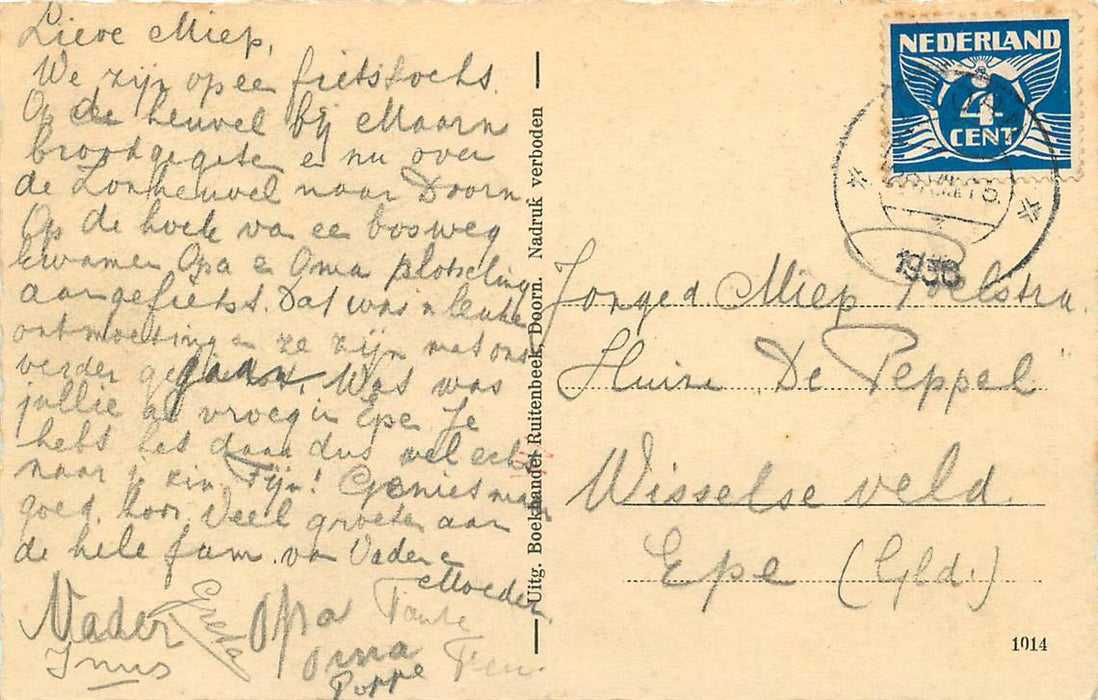 Lieve Miep,
We zijn op ee fietstocht.
Op de heuvel bij Maarn
brood gegeten e nu over
de Zonheuvel naar Doorn
Op de hoek va ee bosweg
kwamen Opa e Oma plotseling
aangefietst. Dat was 'n leuke
ontmoeting en ze zijn met ons
verder gaan. Wat was
jullie al vroeg in Epe. Je
hebt het daar dus wel echt
naar je zin. Fijn! Geniet maar
goed, hoor. Veel groeten aan
de hele fam. van Vader e
Moeder
Vader Greta Opa Tante
Oma Fen.
Poppe
Uitg. Boekhandel Ruitenbeek, Doorn. Nadruk verboden
NEDERLAND
4
CENT
1938
Jonged Miep Poelstra.
Huize De Peppel
Wisselse veld.
Epe (Gld.)
1014